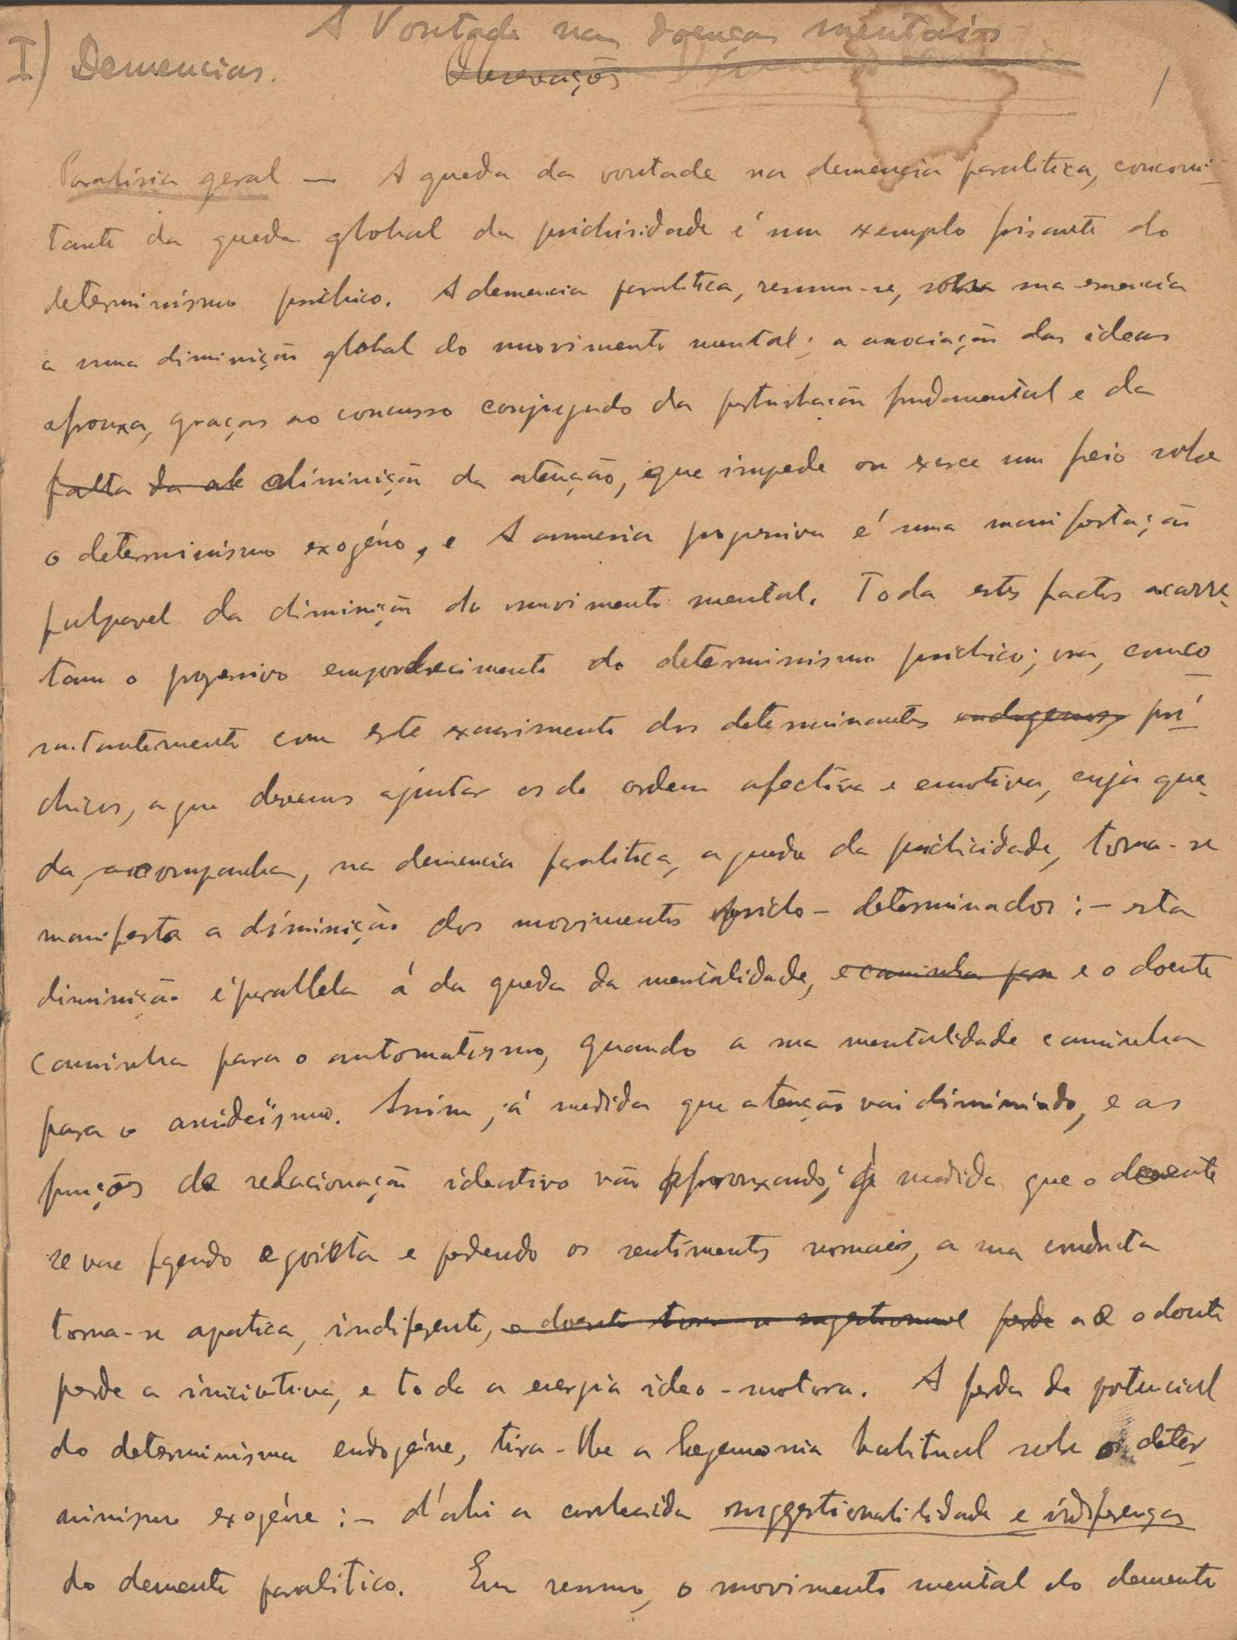 A Vontade nas doenças mentais
I) Demencias. Observações
1
Paralisia geral — A queda da vontade na demencia paralitica, concomi-
tante da queda global da psichisidade é um exemplo frisante do
determinismo psichico. A demencia paralitica, resume-se, na sua essencia
a uma diminuição global do movimento mental; a associação das ideas
afrouxa, graças ao concurso conjugado da perturbação fundamental e da
falta da at diminuição da atenção, que impede ou exerce um freio sobre
o determinismo exogéno, e A amnesia progressiva é uma manifestação
palpavel da diminuição do movimento mental. Todo estes factos acarre-
tam o progressivo empobrecimento do determinismo psichico; ora, conco-
mitantemente com este exaurimento dos determinantes endogenos, psi-
chicos, a que devemos ajuntar os de ordem afectiva e emotiva, cuja que-
da, acompanha, na demencia paralitica, a queda da psichicidade, torna-se
manifesta a diminuição dos movimentos psicho-determinados :- esta
diminuição é parallela á da queda da mentalidade, e caminha para e o doente
caminha para o automatismo, quando a sua mentalidade caminha
para o anideïsmo. Assim, á medida que atenção vai diminuindo, e as
funções de relacionação ideativo vão afrouxando; á medida que o demente
se vae fazendo egoista e perdendo os sentimentos normais, a sua conducta
torna-se apatica, indiferente, o doente torna-se sugestionavel perde a o doente
perde a iniciativa, e toda a energia ideo-motora. A perda de potencial
do determinismo endogéne, tira-lhe a hegemonia habitual sobre o deter-
minismo exogéne :- d'ahi a conhecida suggestionabilidade e indiferença
do demente paralitico. Em resumo, o movimento mental do demente